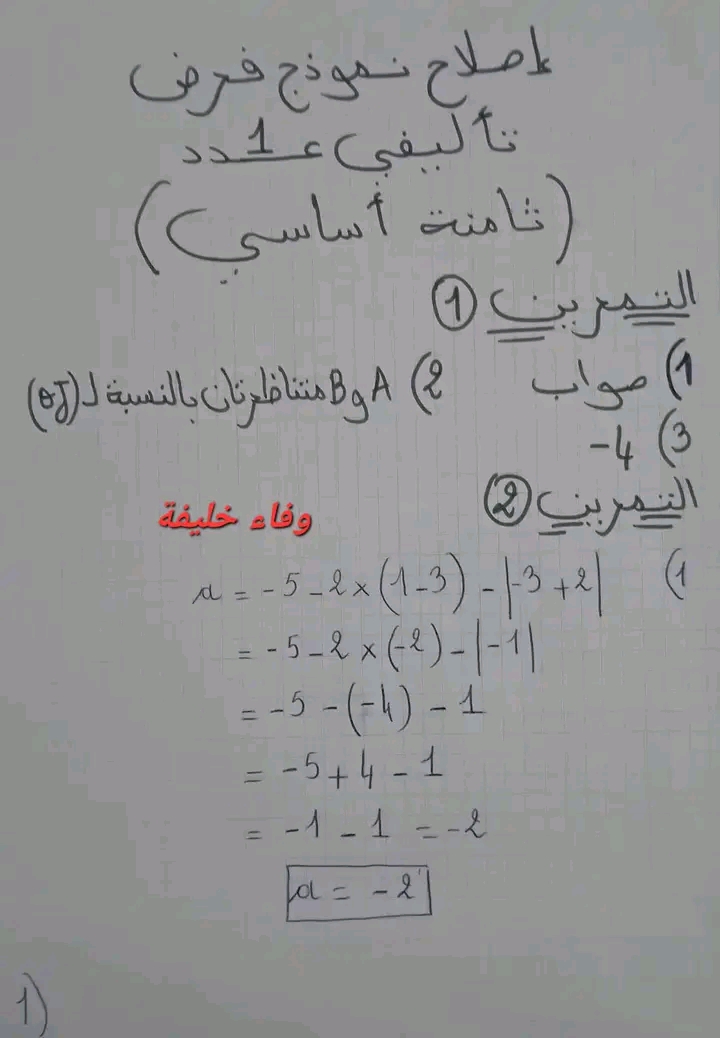 إصلاح نموذج فرض
تأليفي عـ1ـدد
(ثامنة أساسي)
التمرين ①
1) صواب 2) A و B متناظرتان بالنسبة لـ (OJ)
3) -4
التمرين ②
وفاء خليفة
1) a = -5 - 2 × (1 - 3) - |-3 + 2|
= -5 - 2 × (-2) - |-1|
= -5 - (-4) - 1
= -5 + 4 - 1
= -1 - 1 = -2
a = -2
1)